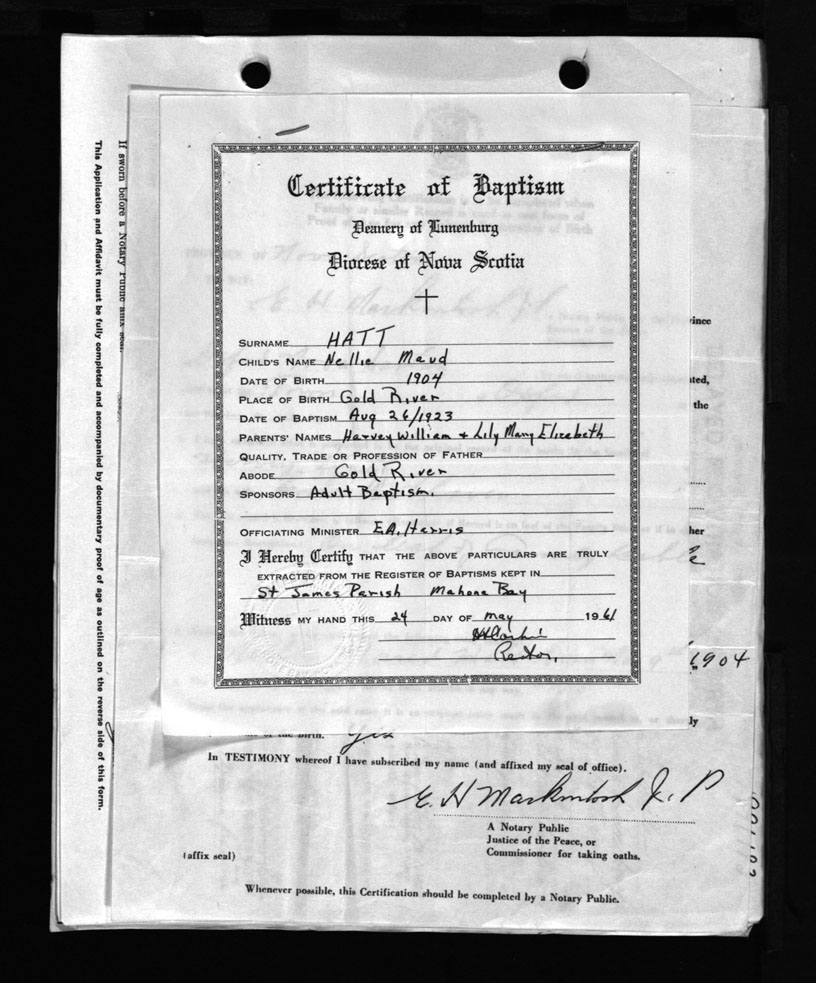 Certificate of Baptism
Deanery of Lunenburg
Diocese of Nova Scotia
SURNAME HATT
CHILD'S NAME Nellie Maud
DATE OF BIRTH 1904
PLACE OF BIRTH Gold River
DATE OF BAPTISM Aug 26/1923
PARENTS' NAMES Harvey William + Lily Mary Elizabeth
QUALITY, TRADE OR PROFESSION OF FATHER
ABODE Gold River
SPONSORS Adult Baptism.
OFFICIATING MINISTER E.A. Harris
I Hereby Certify THAT THE ABOVE PARTICULARS ARE TRULY
EXTRACTED FROM THE REGISTER OF BAPTISMS KEPT IN
St James Parish Mahone Bay
Witness MY HAND THIS 24 DAY OF May 1961
Rector,
If sworn before a Notary Public affix seal.
This Application and Affidavit must be fully completed and accompanied by documentary proof of age as outlined on the reverse side of this form.
ince
ted,
the
her
1904
ly
of the birth. Yes
In TESTIMONY whereof I have subscribed my name (and affixed my seal of office).
E. H Mackintosh J. P
A Notary Public
Justice of the Peace, or
Commissioner for taking oaths.
(affix seal)
Whenever possible, this Certification should be completed by a Notary Public.